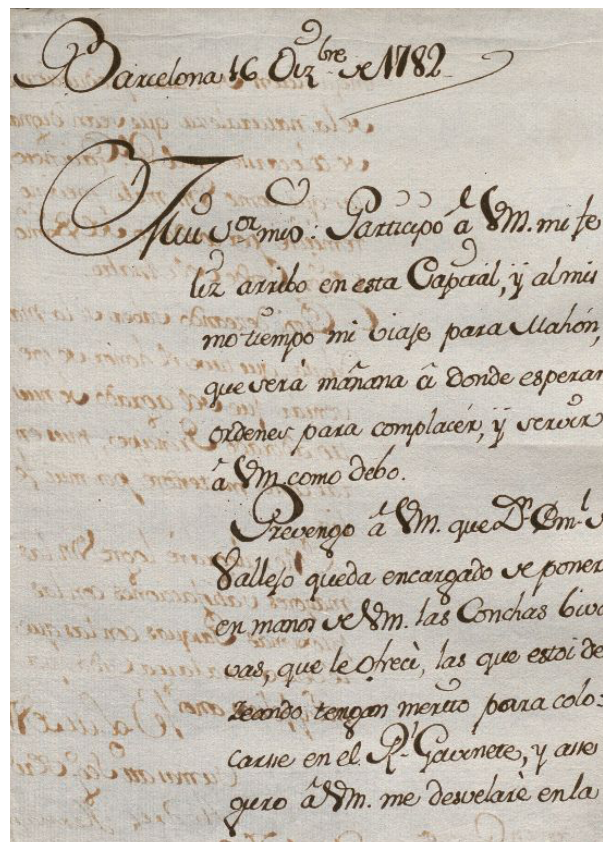 Barcelona 16 Diz.bre de 1782
Mui S.or mio: Participo â VM. mi fe
liz arribo en esta Capitàl, ÿ al mis
mo tiempo mi viaje para Mahón,
que será mañana â donde esperar
ordenes para complacér, ÿ servir
â VM. como debo.
Prevengo â VM. que D.n
Vallejo queda encargado de poner
en manos de VM. las Conchas biva
vas, que le ofrecì, las que estoi de
zeando tengan merito para colo:
carse en el R.l Gavinete, y asse
guro â VM. me desvelarè en la